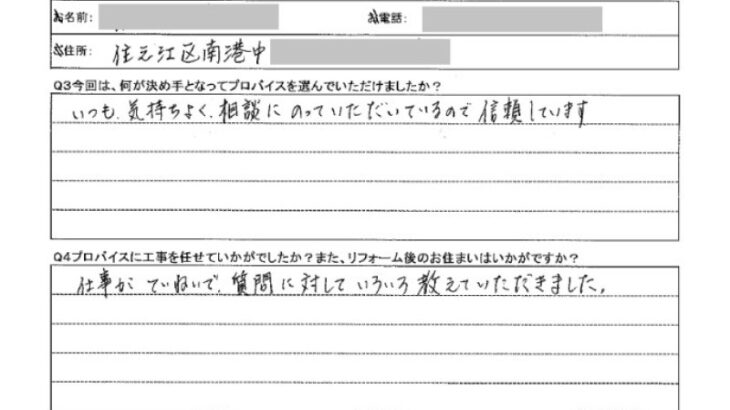 お名前:
お電話:
お住所: 住之江区南港中
Q3今回は、何が決め手となってプロバイスを選んでいただけましたか？
いつも、気持ちよく、相談にのっていただいているので信頼しています
Q4プロバイスに工事を任せていかがでしたか？また、リフォーム後のお住まいはいかがですか？
仕事がていねいで、質問に対していろいろ教えていただきました。